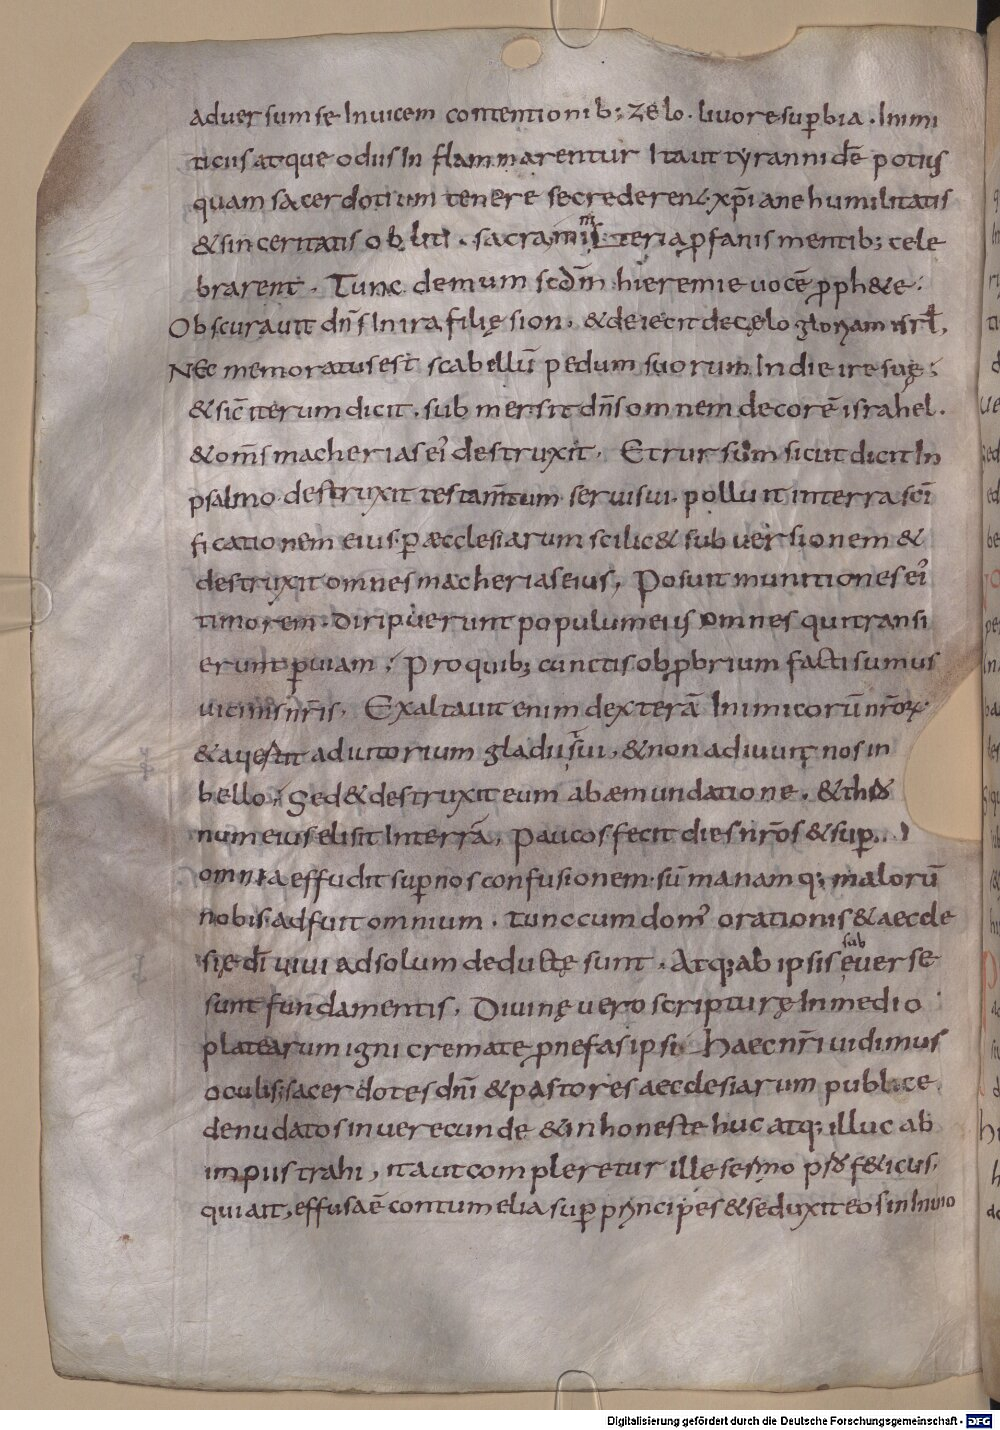 aduersum se Inuicem contentionib; zelo. liuore sup̄bia. Inimi
ticiis atque odiis In flammarentur Ita ut tyrannidē potius
quam sacerdotium tenere se crederent. xp̄iane humilitatis
& sinceritatis obliti. sacra misteria p̄fanis mentib; cele
brarent. Tunc demum scdm̄ hieremie uocē p̄ph&e:
Obscurauit dn̄s In ira filię sion, & deiecit de cęlo gloriam isrl̄,
Nec memoratus est scabellū pedum suorum In die ire suę;
& sic̄ iterum dicit. sub mersit dn̄s omnem decorē israhel.
& om̄s macherias ei' destruxit. Et rursum sicut dicit In
psalmo destruxit testam̄tum serui sui. polluit in terra sc̄i
ficationem eius. p̄ æcclesiarum scilic& subuersionem &
destruxit omnes macherias eius, Posuit munitiones ei'
timorem. diripuerunt populum eius omnes qui transi
erunt p̄ uiam; Pro quib; cunctis obp̄brium facti sumus
uicinis nr̄is. Exaltauit enim dexterā Inimicorū nr̄oꝝ
& auertit adiutorium gladii sui, & non adiuuit nos in
bello; Sed & destruxit eum ab æmundatione. & thro
num eius elisit In terrā, paucos fecit dies nr̄os & sup̄
omnia effudit sup̄ nos confusionem. sū manamq; malorū
nobis adfuit omnium. tunc cum dom' orationis & aeccle
się dī uiui ad solum deductę sunt. Atq; ab ipsis euerse
sub
sunt fundamentis. Diuinę uero scripturę In medio
platearum igni cremate p̄ nefas ipsi Haec nr̄i uidimus
oculis; sacerdotes dn̄i & pastores aecclesiarum publice
denudatos inuerecunde & inhoneste huc atq; illuc ab
impiis trahi, ita ut compleretur ille sermo pro f&icus.
qui ait, effusa ē contumelia sup̄ principes & seduxit eos in Inuio
Digitalisierung gefördert durch die Deutsche Forschungsgemeinschaft - DFG